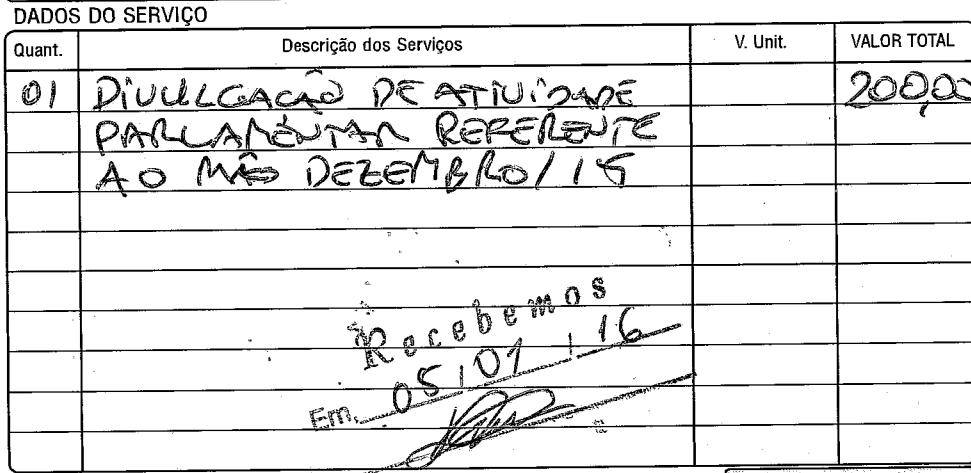 DADOS DO SERVIÇO
Quant. Descrição dos Serviços V. Unit. VALOR TOTAL
01 DIVULGAÇÃO DE ATIVIDADE 200,00
PARLAMENTAR REFERENTE
AO MÊS DEZEMBRO/15
Recebemos
Em 05/01/16